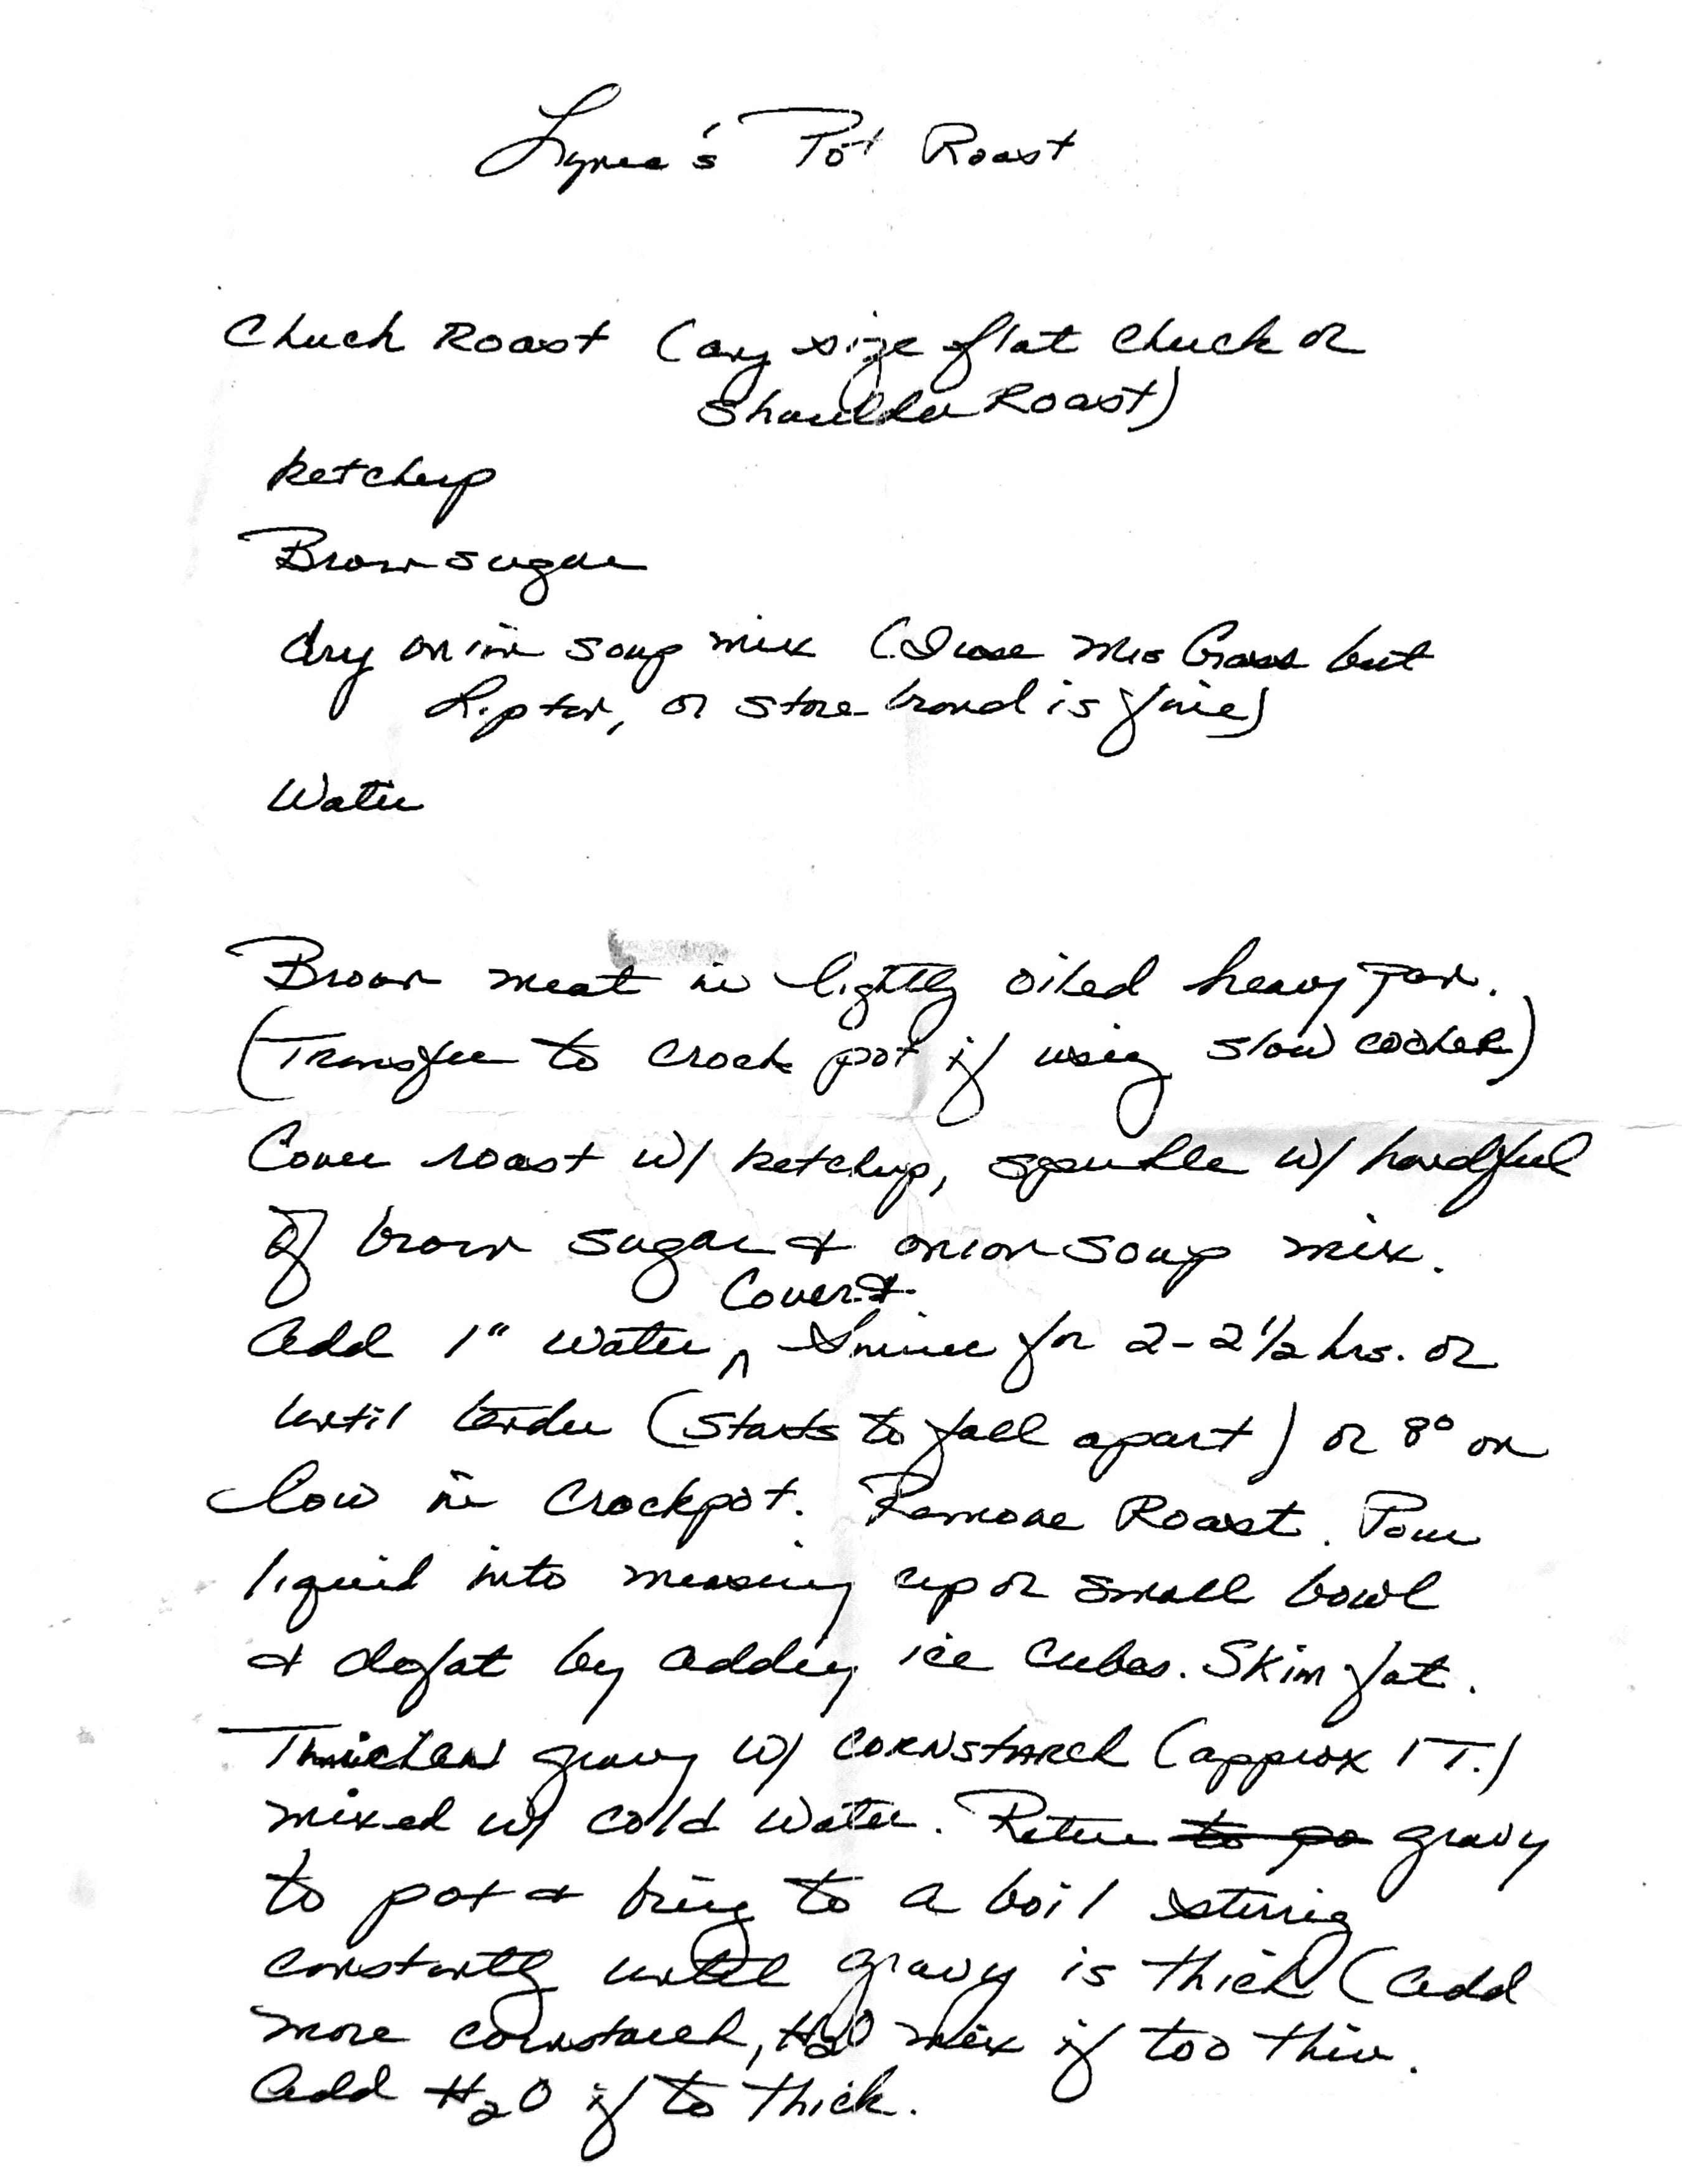 Lynne's Pot Roast
Chuck Roast (any size flat chuck or
Shoulder Roast)
ketchup
Brown sugar
dry onion soup mix (I use Mrs Grass but
Lipton, or store brand is fine)
Water
Brown meat in lightly oiled heavy pan.
(Transfer to crock pot if using slow cooker)
Cover roast w/ ketchup, sprinkle w/ handful
of brown sugar & onion soup mix.
Cover &
Add 1" water, ^ Simmer for 2-2 1/2 hrs. or
until tender (starts to fall apart) or 8° on
low in Crockpot. Remove Roast. Pour
liquid into measuring cup or small bowl
& defat by adding ice cubes. Skim fat.
Thicken gravy w/ cornstarch (approx 1 T.)
mixed w/ cold water. Return to po gravy
to pot & bring to a boil stirring
constantly until gravy is thick (add
more cornstarch, H2O mix if too thin.
Add H2O if to thick.